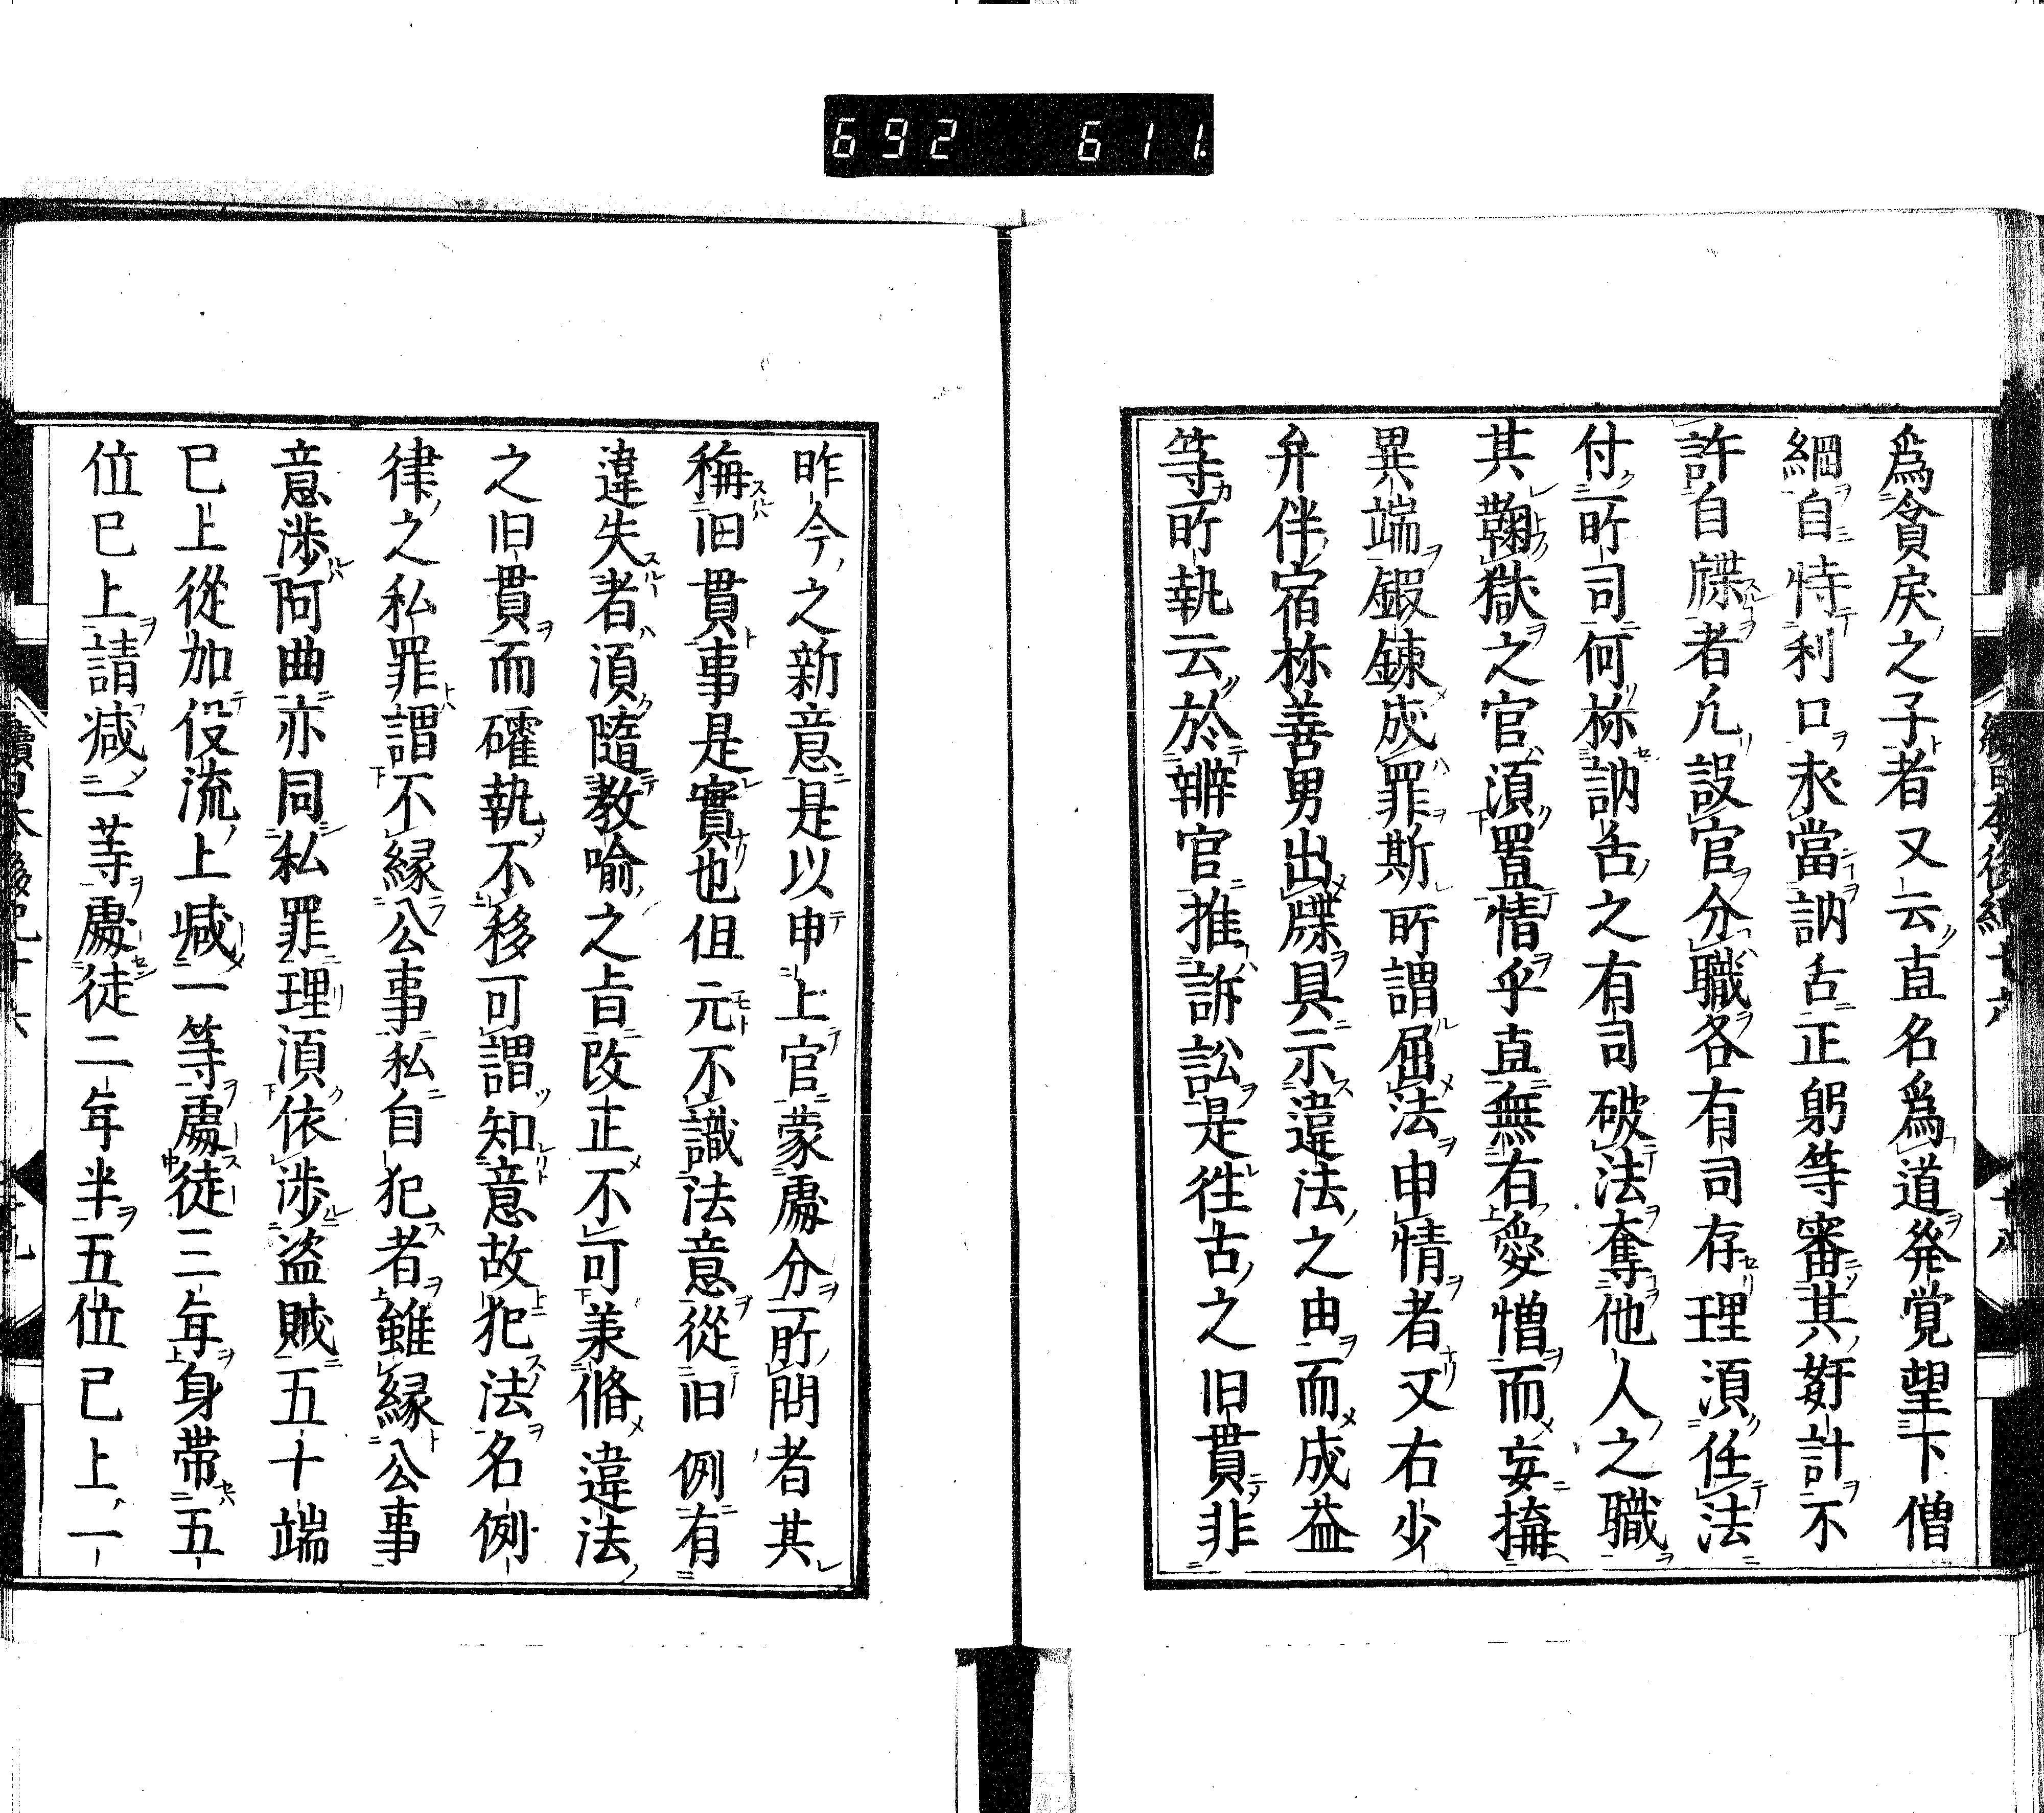 692 611.
爲貪戾之子者又云直名爲道発覚望下僧
綱自恃利口求當訥舌正躬等審其姧計不
許自牒者凢設官分職各有司存理湏任法
付所司何称訥舌之有司破法奪他人之職
其鞠獄之官湏置情乎直無右愛憎而妄搆
異端鍜錬成罪斯所謂屈法申情者又右少
弁伴宿祢善男出牒具示違法之由而成益
等所執云於辨官推訴訟是徃古之旧貫非
昨今之新意是以申上官蒙處分所問者其
稱旧貫事是實也伹元不識法意從旧例有
違失者湏隨教喻之旨改正不可兼脩違法
之旧貫而確執不移可謂知意故犯法名例
律之私罪謂不縁公事私自犯者雖縁公事
意渉阿曲亦同私罪理湏依渉盗賊五十端
已上從加役流上减一等處徒三年身帯五
位已上請减一等處徒二年半五位已上一